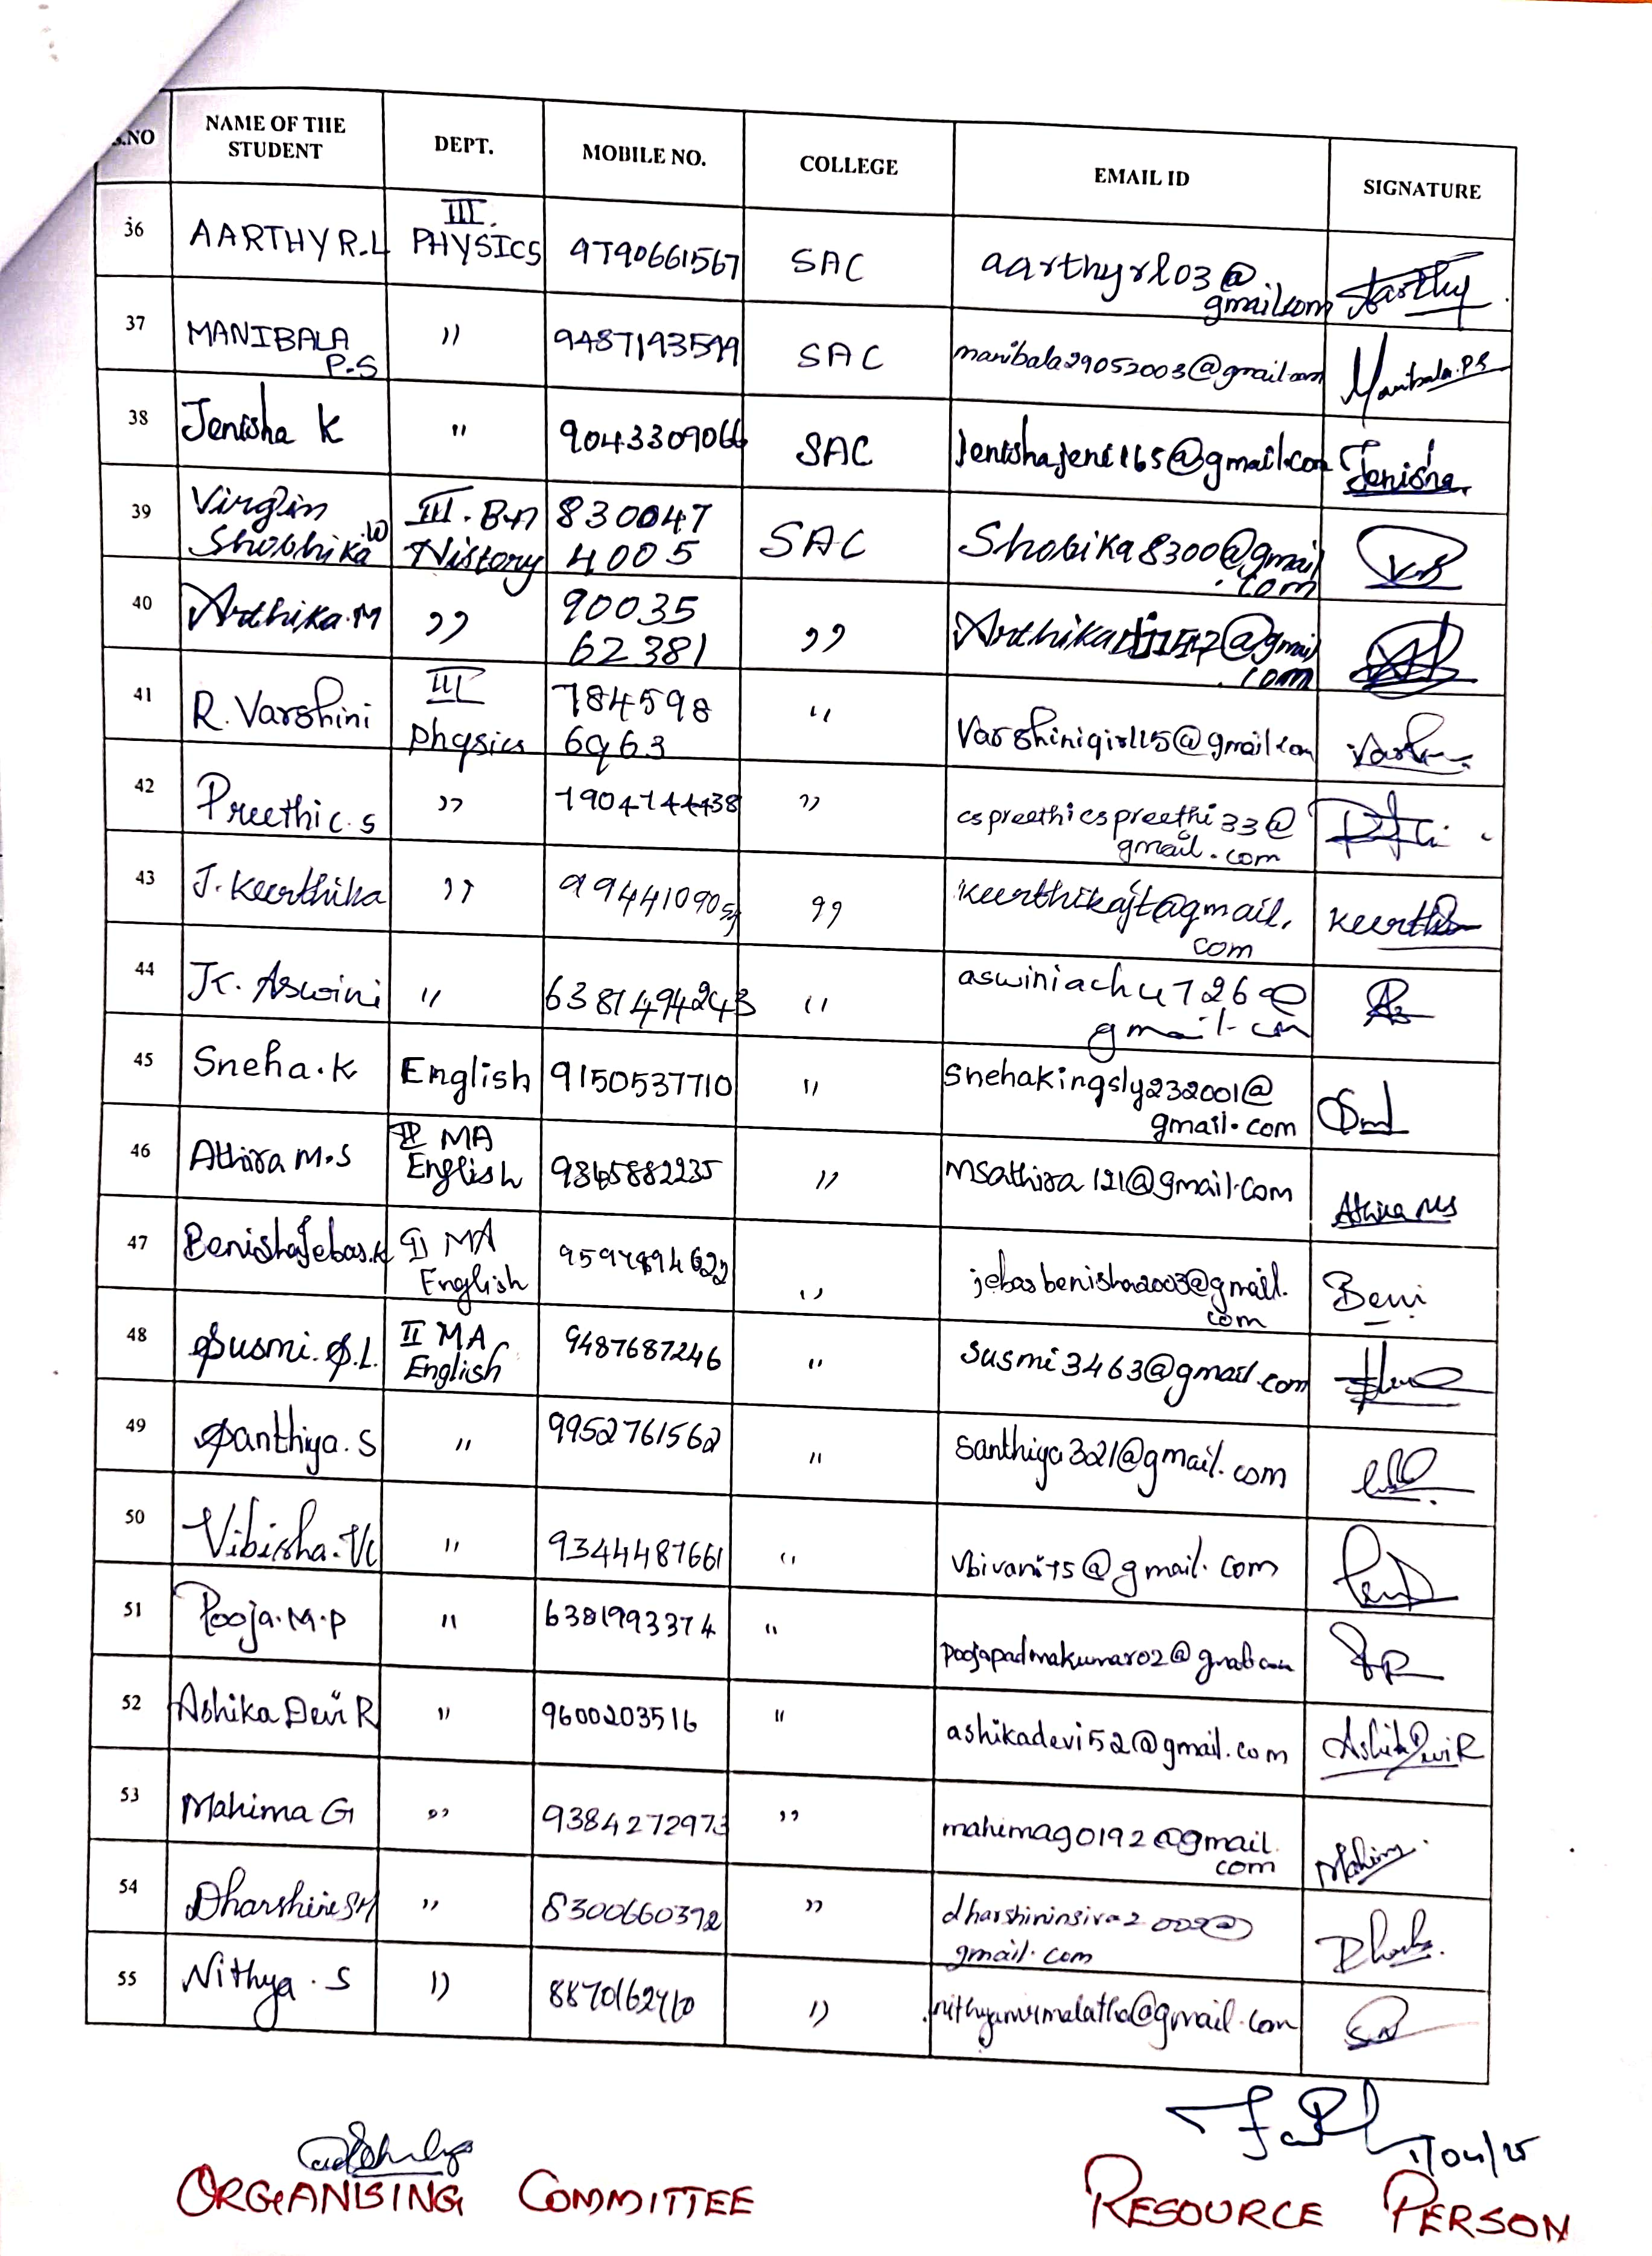 S.NO NAME OF THE STUDENT DEPT. MOBILE NO. COLLEGE EMAIL ID SIGNATURE
36 AARTHY R.L III. PHYSICS 9790661567 SAC aarthyrl03@gmail.com Aarthy
37 MANIBALA P.S " 9487193599 SAC manibala29052003@gmail.com Manibala.P.S
38 Jenisha K " 9043309066 SAC jenishajeni165@gmail.com Jenisha
39 Virgin Shobhika W III. B.A History 830047 4005 SAC Shobika8300@gmail.com
40 Ardhika.M " 90035 62381 "
41 R. Varshini III Physics 784598 6963 " Varshinigirl115@gmail.com
42 Preethi C.S " 7904744438 " cspreethicspreethi33@gmail.com
43 J. Keerthika " " keerthikajt@gmail.com
44 K. Aswini " 6381494243 " aswiniachu726@gmail.com
45 Sneha.K English 9150537710 " Snehakingsly232001@gmail.com
46 Athira M.S II MA English 9365882235 " msathira121@gmail.com Athira MS
47 Benisha Jebas.K II MA English " jebasbenisha2003@gmail.com Beni
48 Susmi.S.L. II MA English 9487687246 " susmi3463@gmail.com
49 Santhiya.S " 9952761562 " santhiya321@gmail.com
50 Vibisha.V " 9344487661 "
51 Pooja.M.P " 6381993374 " poojapadmakumar02@gmail.com
52 Ashika Devi R " 9600203516 " ashikadevi52@gmail.com Ashika Devi R
53 Mahima G " 9384272973 " mahimag0192@gmail.com Mahima
54 Dharshini SM " 8300660372 " gmail.com
55 Nithya.S " "
1/04/25
ORGANISING COMMITTEE RESOURCE PERSON